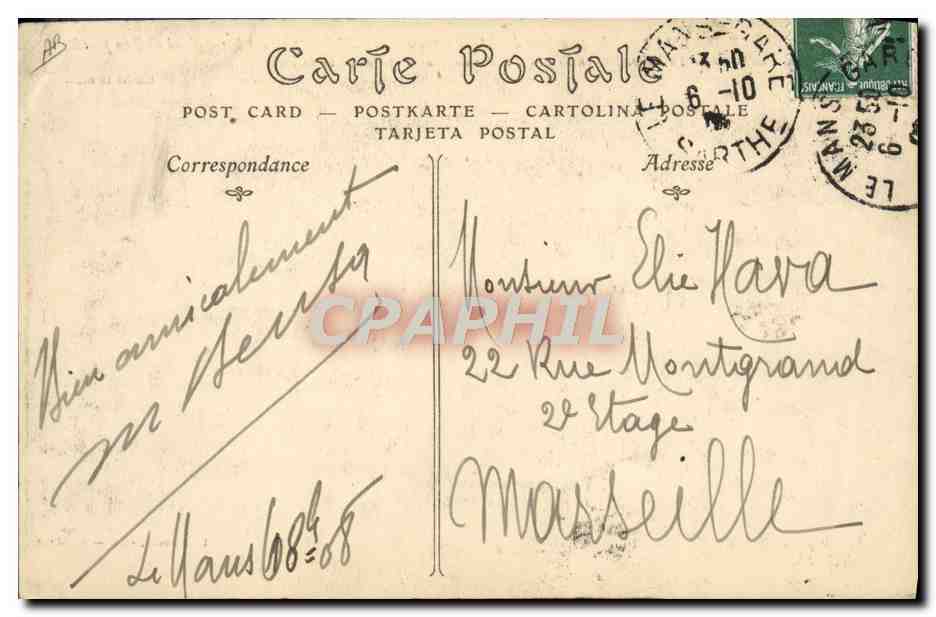 AB
Carte Postale
POST CARD — POSTKARTE — CARTOLINA POSTALE
TARJETA POSTAL
Correspondance
Adresse
LE MANS - GARE
23 50
6 -10
SARTHE
REPUBLIQUE FRANÇAISE
LE MANS - GARE
23 50
6 -10
Bien amicalement
M
Le Mans
08
Monsieur Elie Hava
22 Rue Montgrand
2e Etage
Marseille
CPAPHIL